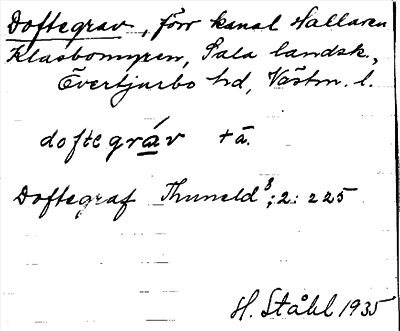 Doftegrav, förr kanal Hallaren
Klasbomyren, Sala landsk.,
Övertjurbo hd, Västm. l.
doftegráv +ā.
Doftegraf Thuneld³; 2: 225
H. Ståhl 1935